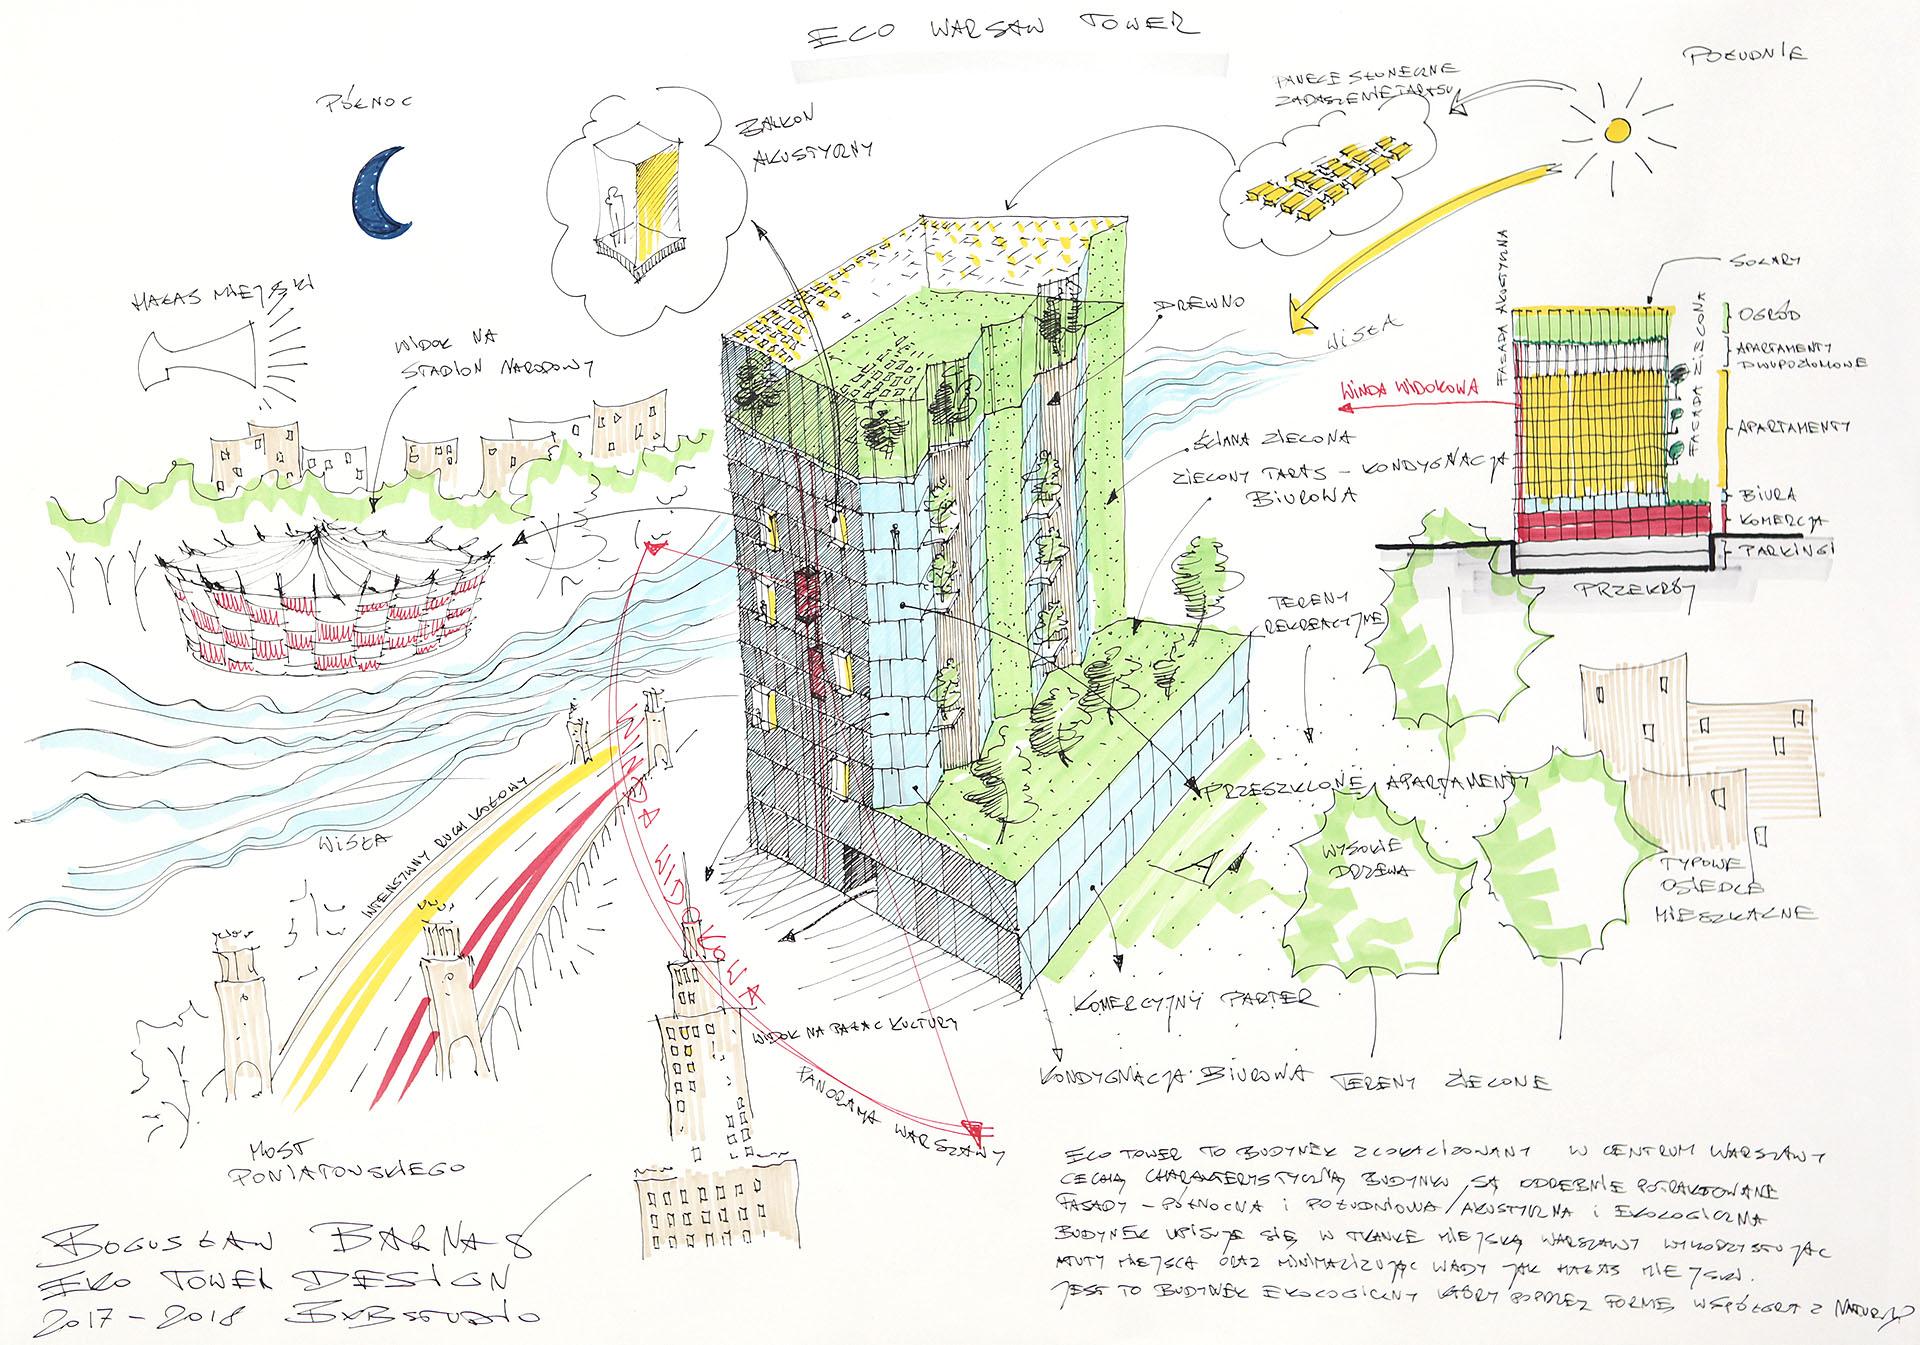 ECO WARSAW TOWER
POŁUDNIE
PÓŁNOC
PANELE SŁONECZNE
ZADASZENIE TARASU
BALKON
AKUSTYCZNY
HAŁAS MIEJSKI
WIDOK NA
STADION NARODOWY
DREWNO
WISŁA
FASADA AKUSTYCZNA
SOLARY
FASADA ZIELONA
OGRÓD
APARTAMENTY
DWUPOZIOMOWE
WINDA WIDOKOWA
APARTAMENTY
ŚCIANA ZIELONA
ZIELONY TARAS - KONDYGNACJA
BIUROWA
BIURA
KOMERCJA
PARKINGI
PRZEKRÓJ
TERENY
REKREACYJNE
PRZESZKLONE APARTAMENTY
WISŁA
INTENSYWNY RUCH KOŁOWY
WINDA WIDOKOWA
WYSOKIE
DRZEWA
TYPOWE
OSIEDLE
MIESZKALNE
KOMERCYJNY PARTER
WIDOK NA PAŁAC KULTURY
PANORAMA WARSZAWY
KONDYGNACJA BIUROWA
TERENY ZIELONE
MOST
PONIATOWSKIEGO
ECO TOWER TO BUDYNEK ZLOKALIZOWANY W CENTRUM WARSZAWY
CECHĄ CHARAKTERYSTYCZNĄ BUDYNKU SĄ ODRĘBNIE POTRAKTOWANE
FASADY - PÓŁNOCNA I POŁUDNIOWA / AKUSTYCZNA I EKOLOGICZNA
BUDYNEK WPISUJE SIĘ W TKANKĘ MIEJSKĄ WARSZAWY WYKORZYSTUJĄC
ATUTY MIEJSCA ORAZ MINIMALIZUJĄC WADY JAK HAŁAS MIEJSKI.
JEST TO BUDYNEK EKOLOGICZNY KTÓRY POPRZEZ FORMĘ WSPÓŁGRA Z NATURĄ
BOGUSŁAW BARNAŚ
EKO TOWER DESIGN
2017 - 2018 BXBSTUDIO